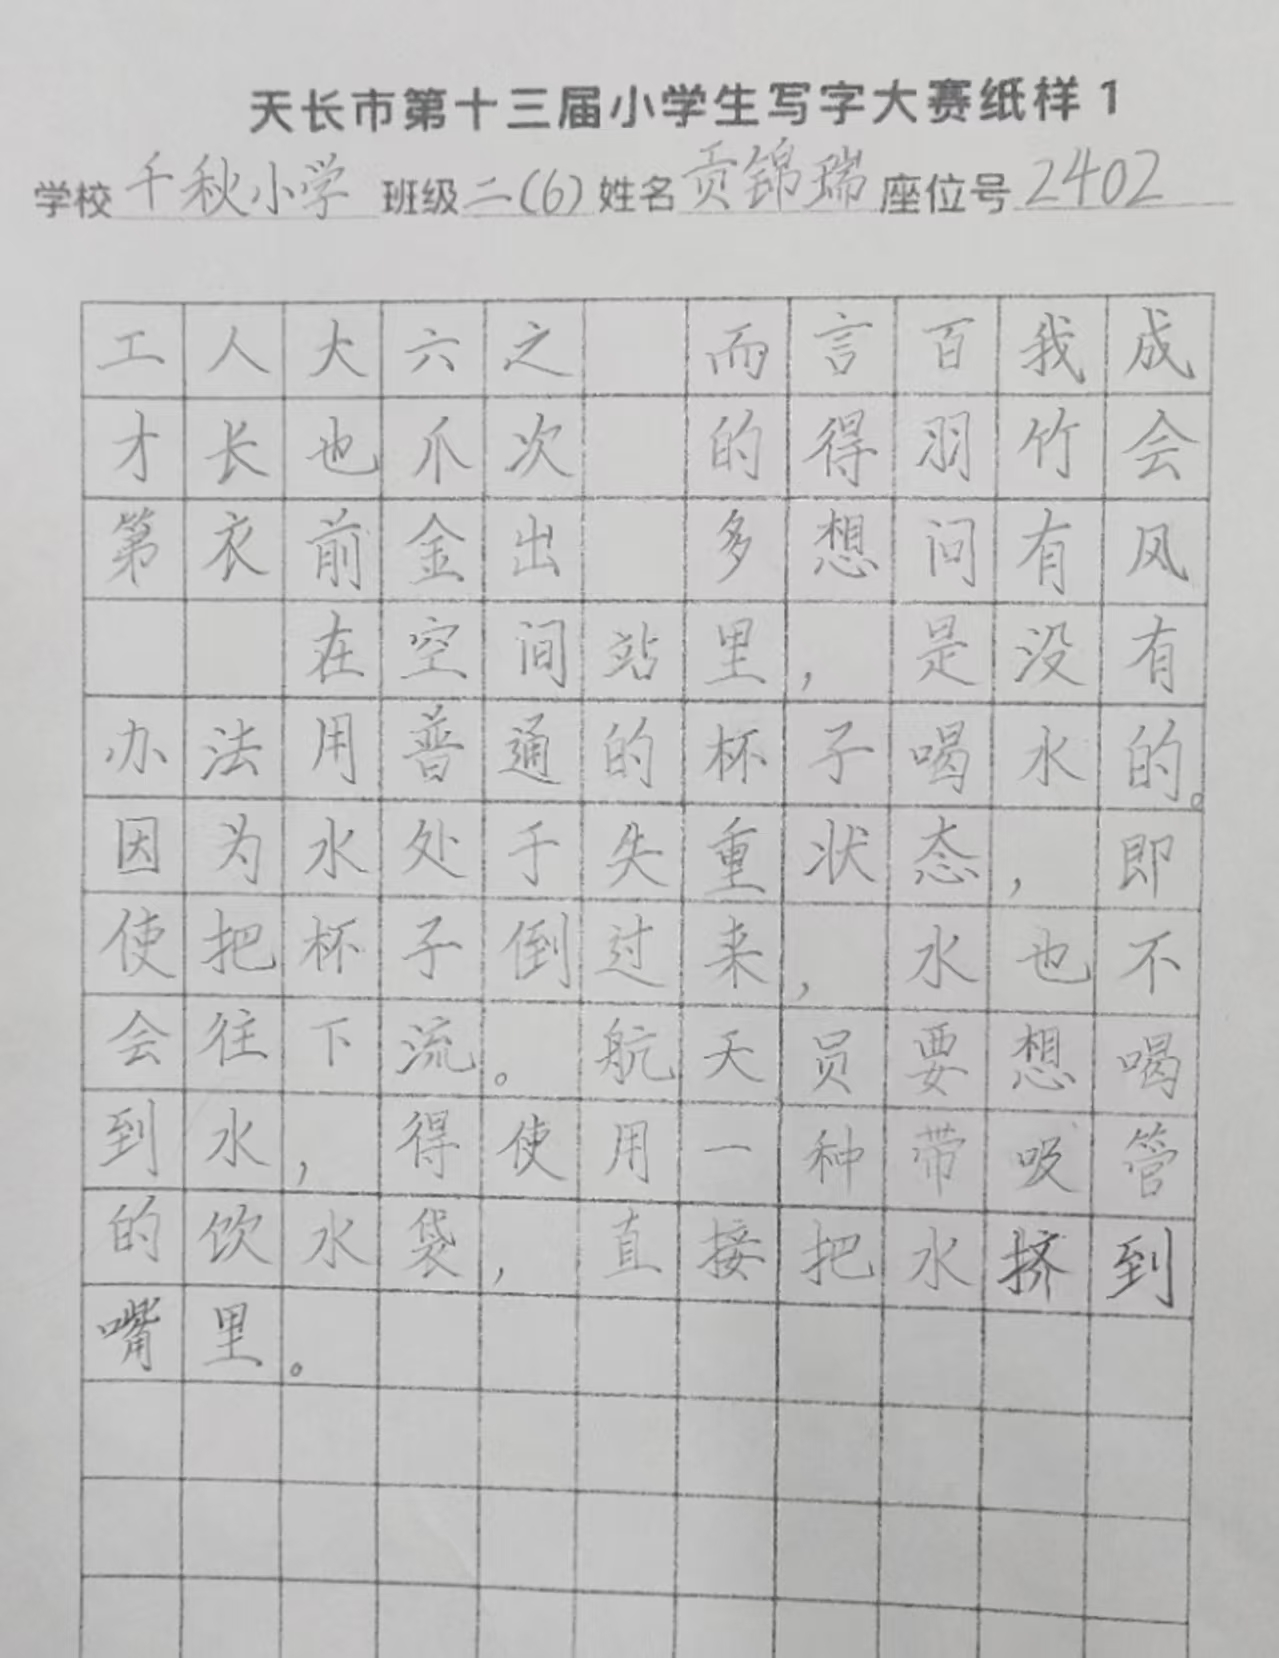 天长市第十三届小学生写字大赛纸样1
学校 千秋小学 班级 二(6) 姓名 贡锦瑞 座位号 2402
工人大六之 而言百我成
才长也爪次 的得羽竹会
第衣前金出 多想问有风
在空间站里，是没有
办法用普通的杯子喝水的。
因为水处于失重状态，即
使把杯子倒过来，水也不
会往下流。航天员要想喝
到水，得使用一种带吸管
的饮水袋，直接把水挤到
嘴里。